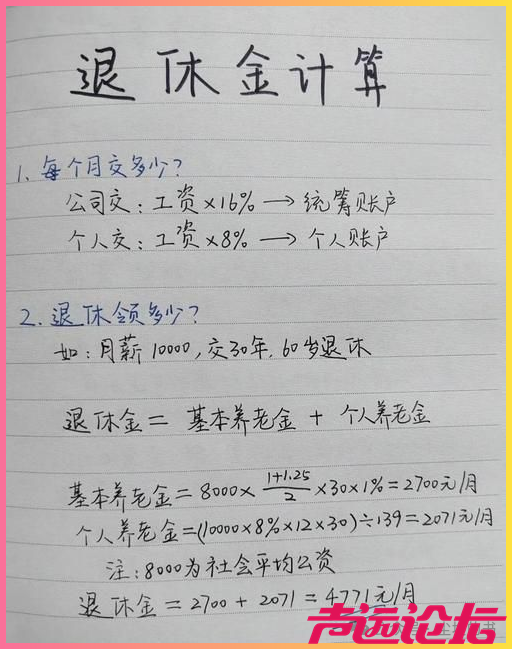 退休金计算
1. 每个月交多少?
公司交: 工资×16% → 统筹账户
个人交: 工资×8% → 个人账户
2. 退休领多少?
如: 月薪10000, 交30年, 60岁退休
退休金 = 基本养老金 + 个人养老金
基本养老金 = 8000 × (1+1.25)/2 × 30 × 1% = 2700元/月
个人养老金 = (10000×8%×12×30) ÷ 139 = 2071元/月
注: 8000为社会平均公资
退休金 = 2700 + 2071 = 4771元/月
声远论坛